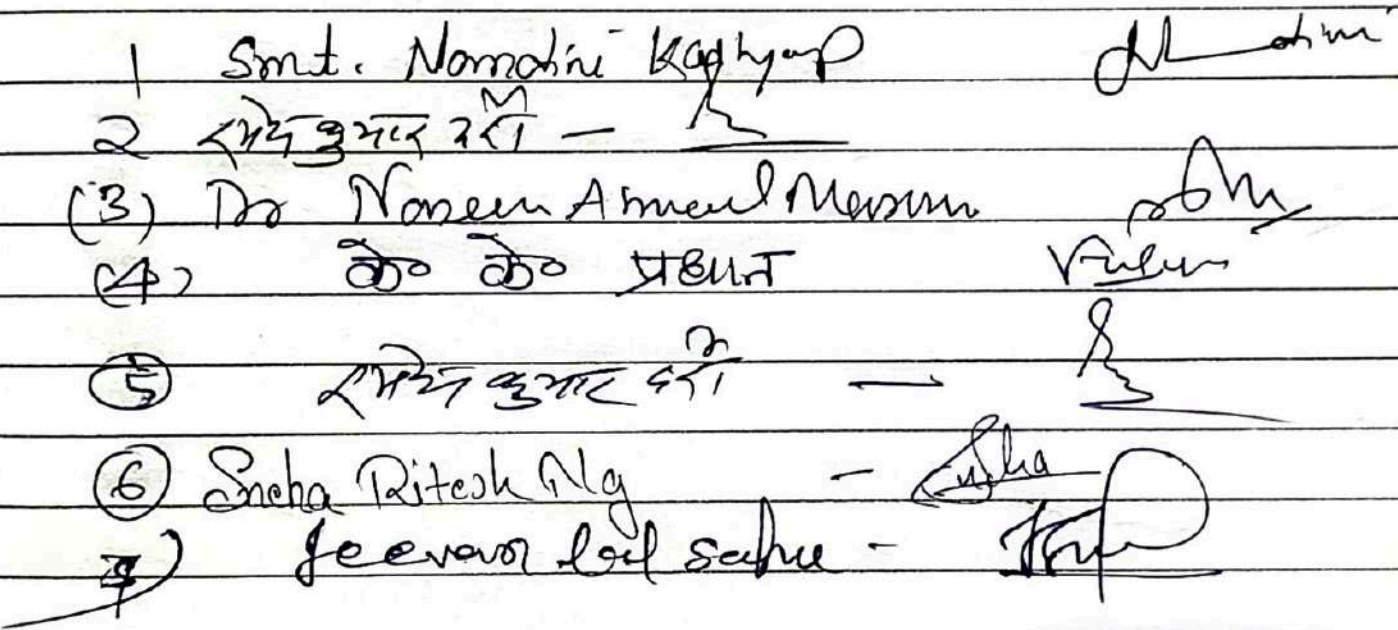 1 Smt. Namdini Kashyap
2 रमेश कुमार वर्मा –
(3) Dr Naseem Ahmed Mansuri
(4) के० के० प्रधान
(5) रमेश कुमार वर्मा –
(6) Sneha Ritesh Ng – Sneha
7) Jeevan lal sahu –